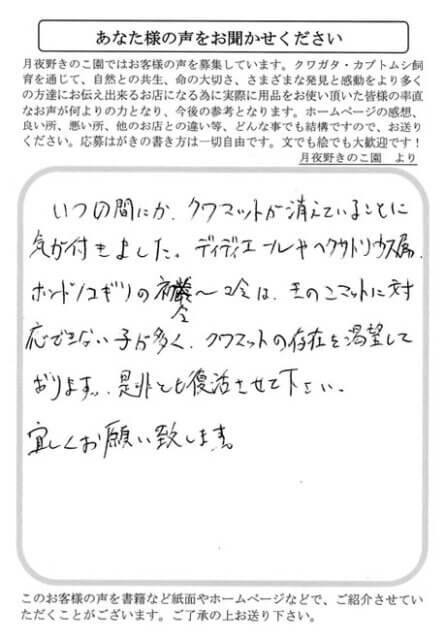 あなた様の声をお聞かせください
月夜野きのこ園ではお客様の声を募集しています。クワガタ・カブトムシ飼
育を通じて、自然との共生、命の大切さ、さまざまな発見と感動をより多く
の方達にお伝え出来るお店になる為に実際に用品をお使い頂いた皆様の率直
なお声が何よりの力となり、今後の参考となります。ホームページの感想、
良い所、悪い所、他のお店との違い等、どんな事でも結構ですので、お送り
ください。応募はがきの書き方は一切自由です。文でも絵でも大歓迎です！
月夜野きのこ園　より
いつの間にか、クワマットが消えていることに
気が付きました。ディディエールやヘクサトリウス属、
ホンドノコギリの初令〜2令は、きのこマットに対
応できない子が多く、クワマットの存在を渇望して
おります。是非とも復活させて下さい。
宜しくお願い致します。
このお客様の声を書籍など紙面やホームページなどで、ご紹介させてい
ただくことがございます。ご了承の上お送り下さい。